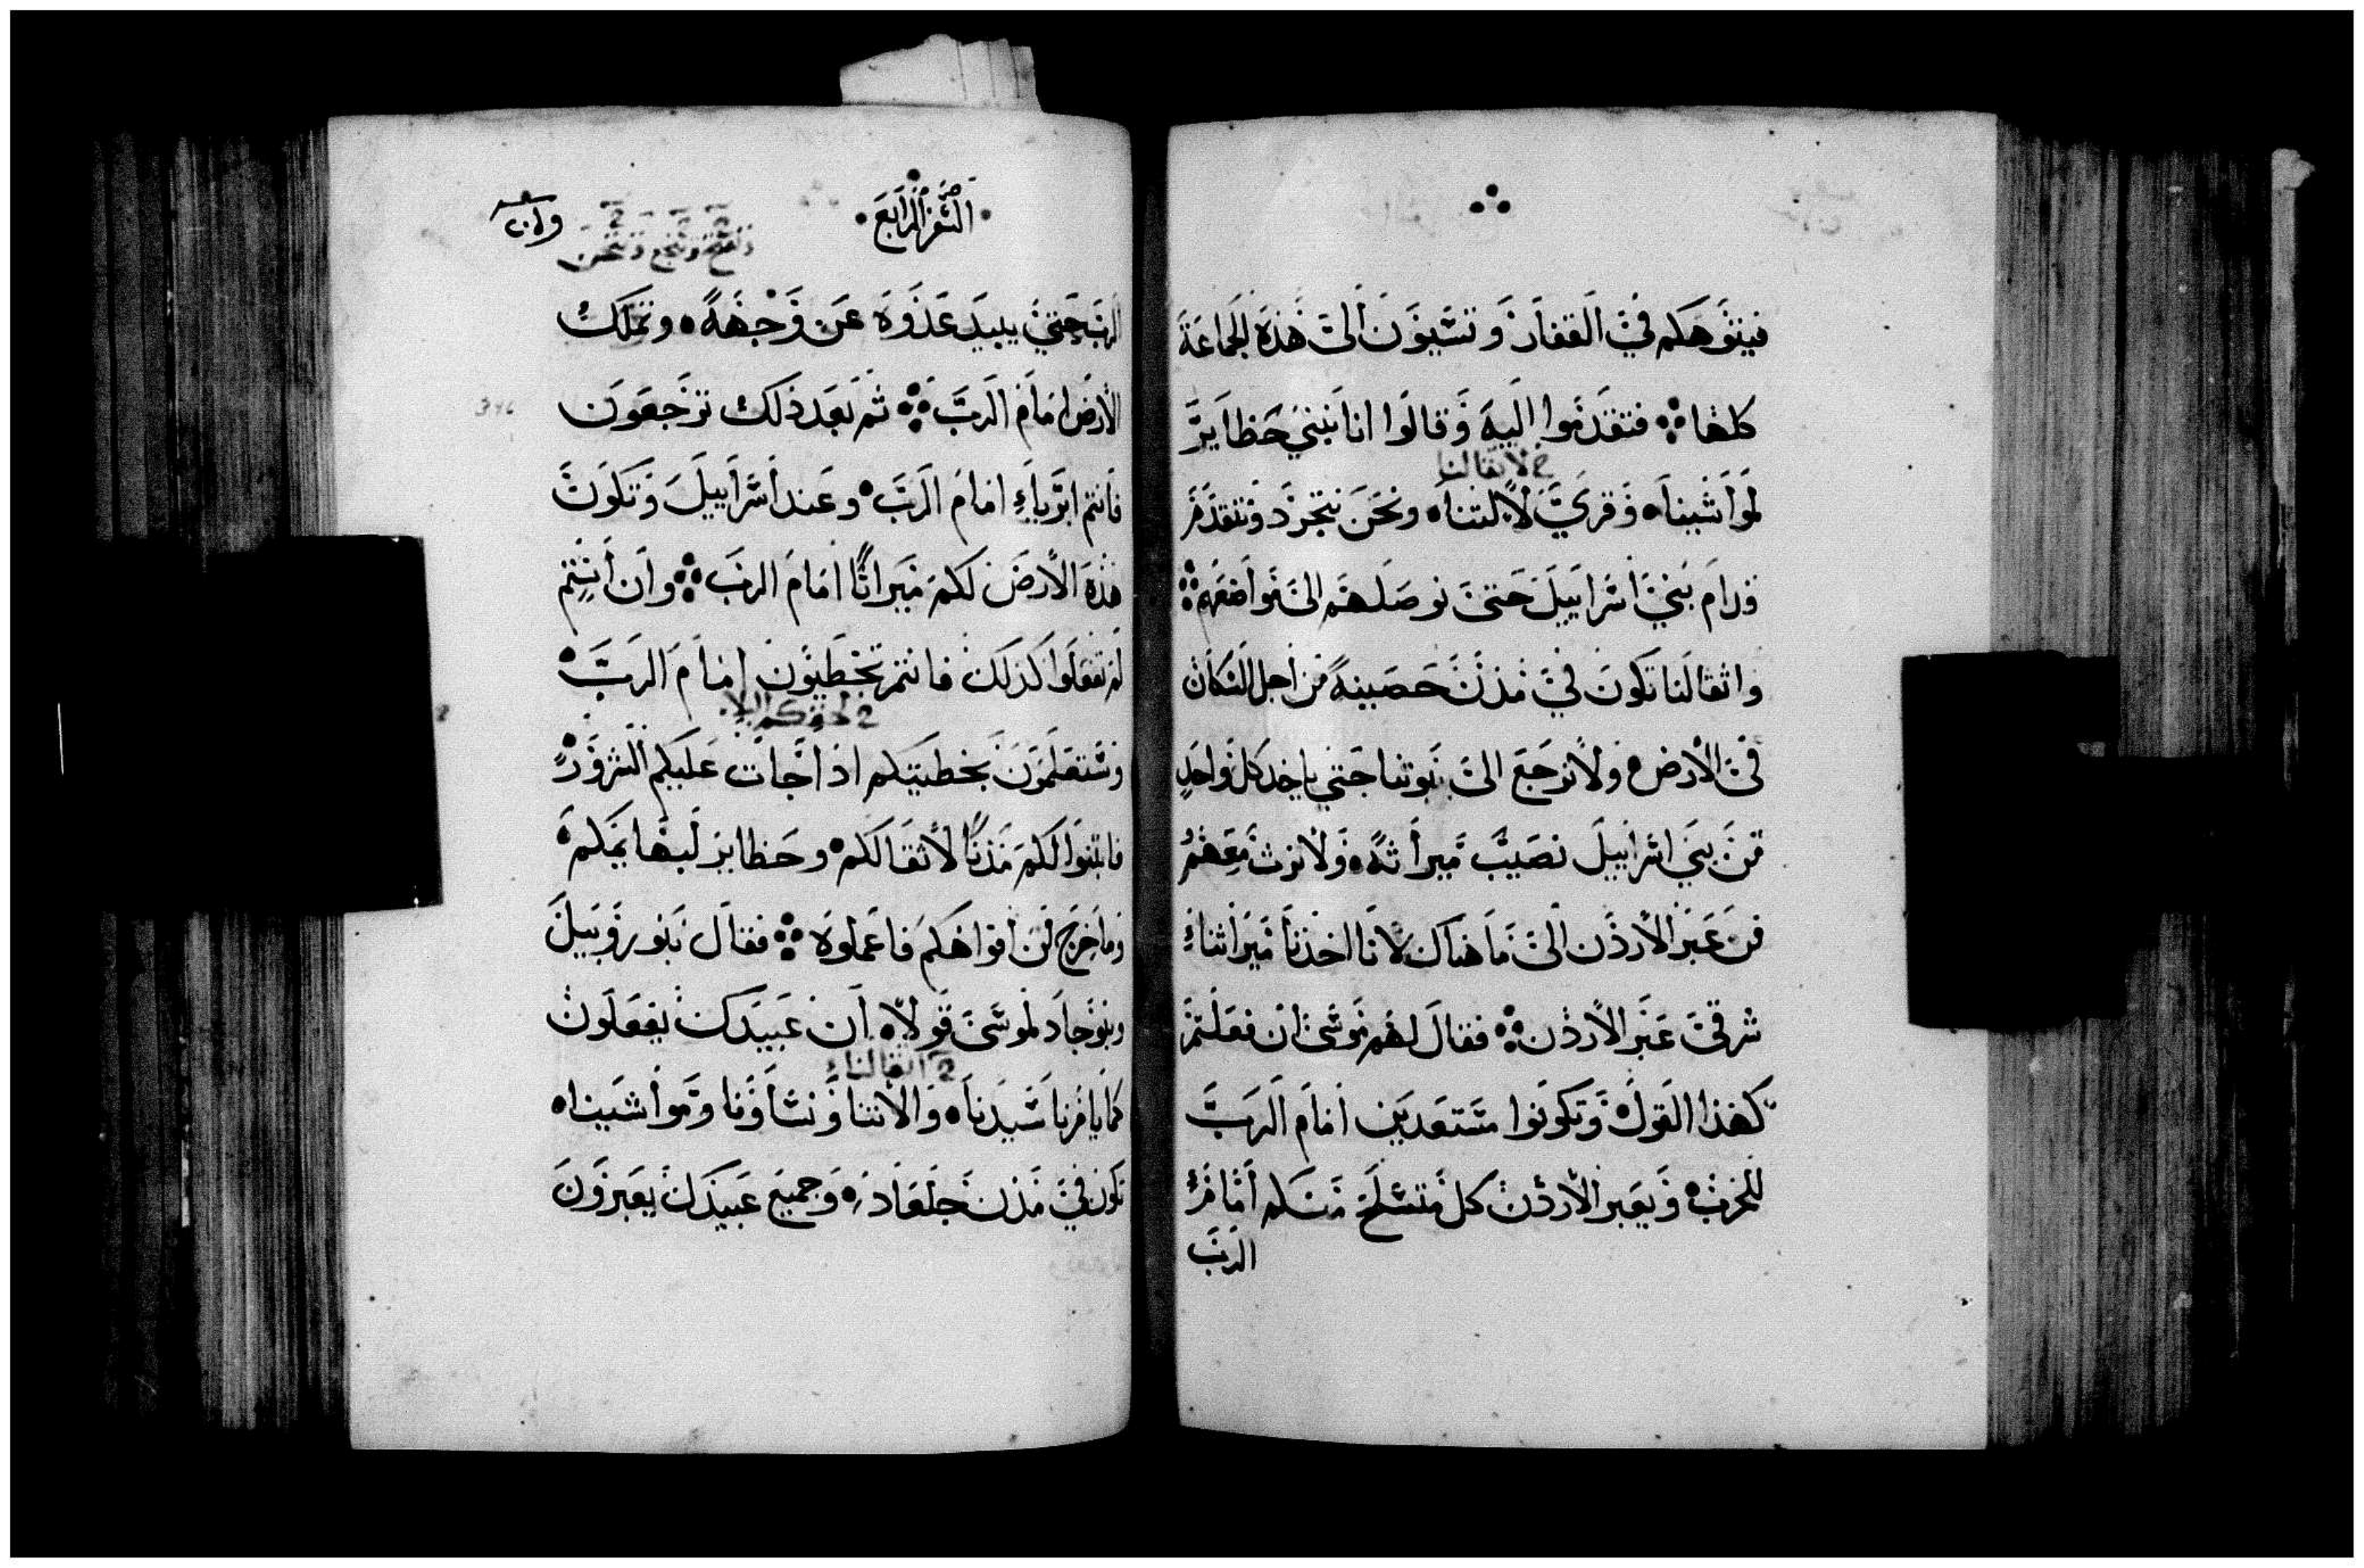 فيتوهكم في القفار وتسيون الى هذه الجماعة
كلها فتقدموا اليه وقالوا انا نبني حظاير
ح لاثقالنا
لمواشينا وقري لالتنا ونحن نتجرد ونتقدم
قدام بني اسراييل حتى نوصلهم الى مواضعهم
واثقالنا تكون في مدن حصينة من اجل السكان
في الارض ولا نرجع الى بيوتنا حتي ياخد كل واحد
من بني اسراييل نصيب ميراثه ولا نرث معهم
من عبر الاردن الى ما هناك لانا اخذنا ميراثنا
شرقي عبر الاردن فقال لهم موسى ان فعلتم
كهذا القول وتكونوا مستعدين امام الرب
للحرب ويعبر الاردن كل متسلح منكم امام
الرب
السفر الرابع
الرب حتي يبيد عدوه عن وجهه وتملك
الارض امام الرب ثم بعد ذلك ترجعون
فانتم ابرياء امام الرب وعند اسراييل وتكون
هذه الارض لكم ميراثا امام الرب وان انتم
لم تفعلوا كذلك فانتم تخطيون امام الرب
وستعلمون بخطيتكم اذا جات عليكم الشرور
فابنوا لكم مدنا لاثقالكم وحظاير لبهايمكم
وما خرج من افواهكم فاعملوه فقال بنو روبيل
وبنو جاد لموسى قولا ان عبيدك يفعلون
ح اثقالنا
كما يامرنا سيدنا والاتنا ونساونا ومواشينا
تكون في مدن جلعاد وجميع عبيدك يعبرون